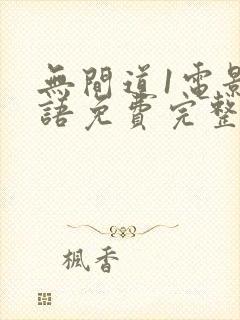 無間道1電影
語免費完整
楓香